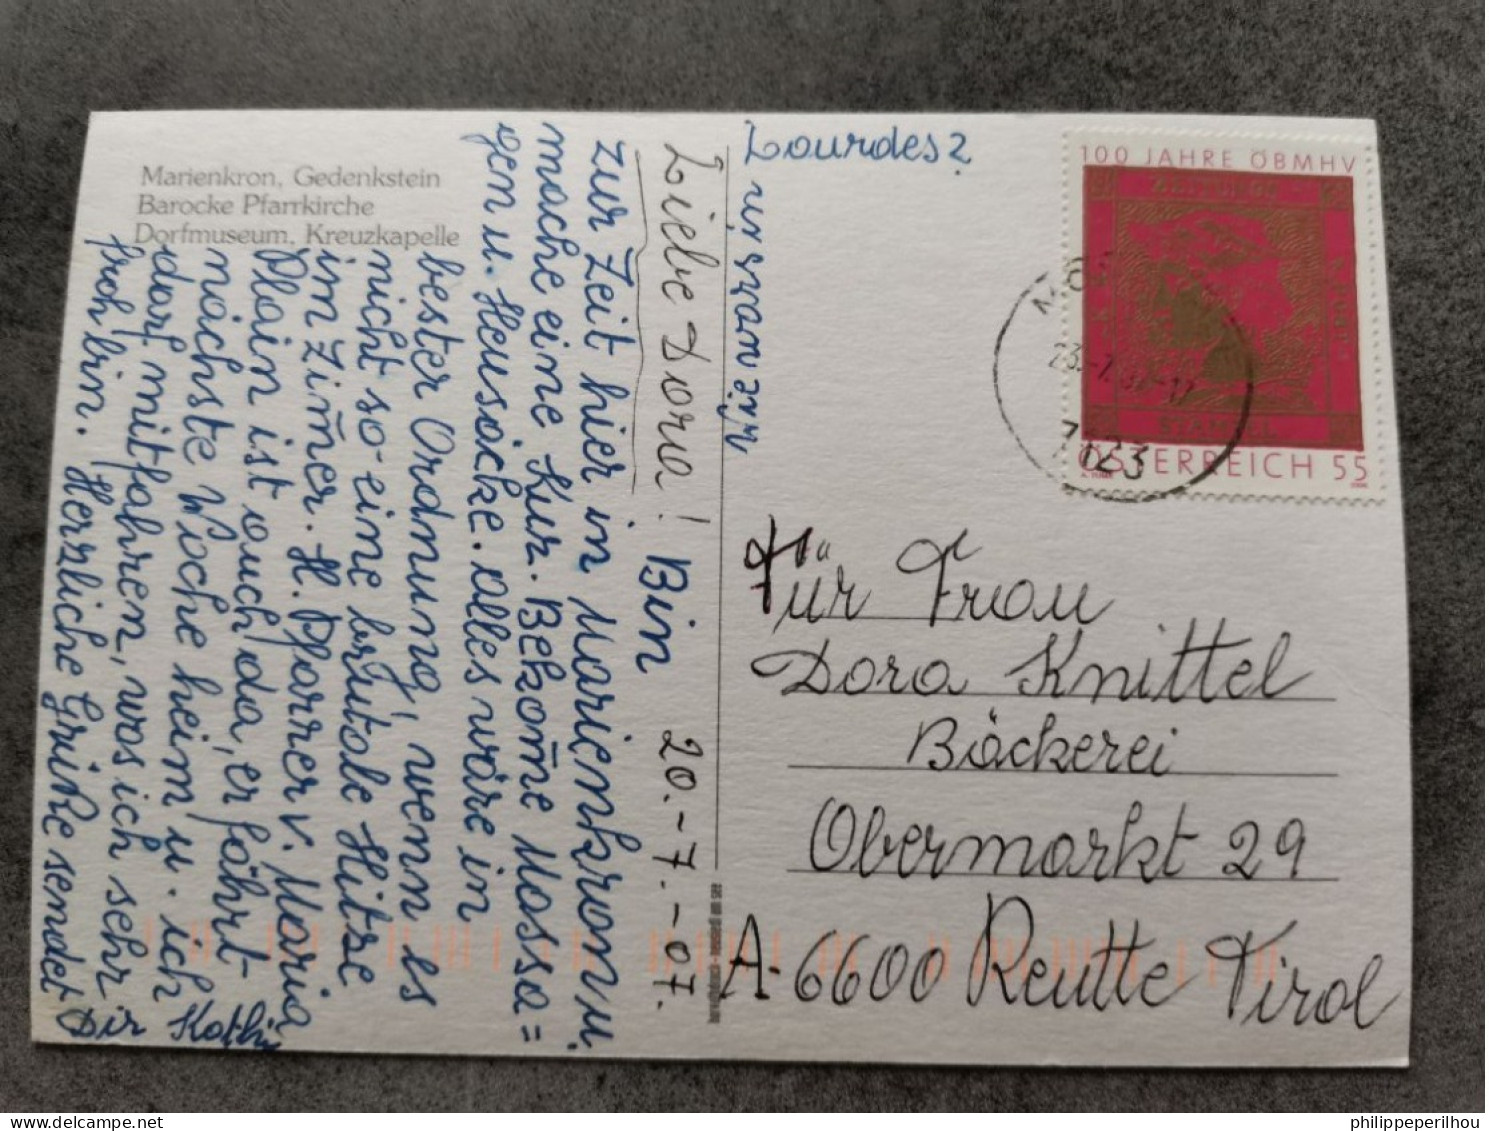 Marienkron, Gedenkstein
Barocke Pfarrkirche
Dorfmuseum, Kreuzkapelle
Liebe Dora! Bin 20.-7.-07.
zur Zeit hier in Marienkron u.
mache eine Kur. Bekom̄e Massa=
gen u. Heusäcke. Alles wäre in
bester Ordnung, wenn es
nicht so eine brutale Hitze
im Zim̄er. H. Pfarrer v. Maria
Plain ist auch da, er fährt
nächste Woche heim u. ich
darf mitfahren, was ich sehr
froh bin. Herzliche Grüße sendet Dir Kathi
Wie wars in
Lourdes?
100 JAHRE ÖBMHV
ZEITUNGS
STAMPEL
ÖSTERREICH 55
7123
Für Frau
Dora Knittel
Bäckerei
Obermarkt 29
A-6600 Reutte Tirol
philippeperilhou